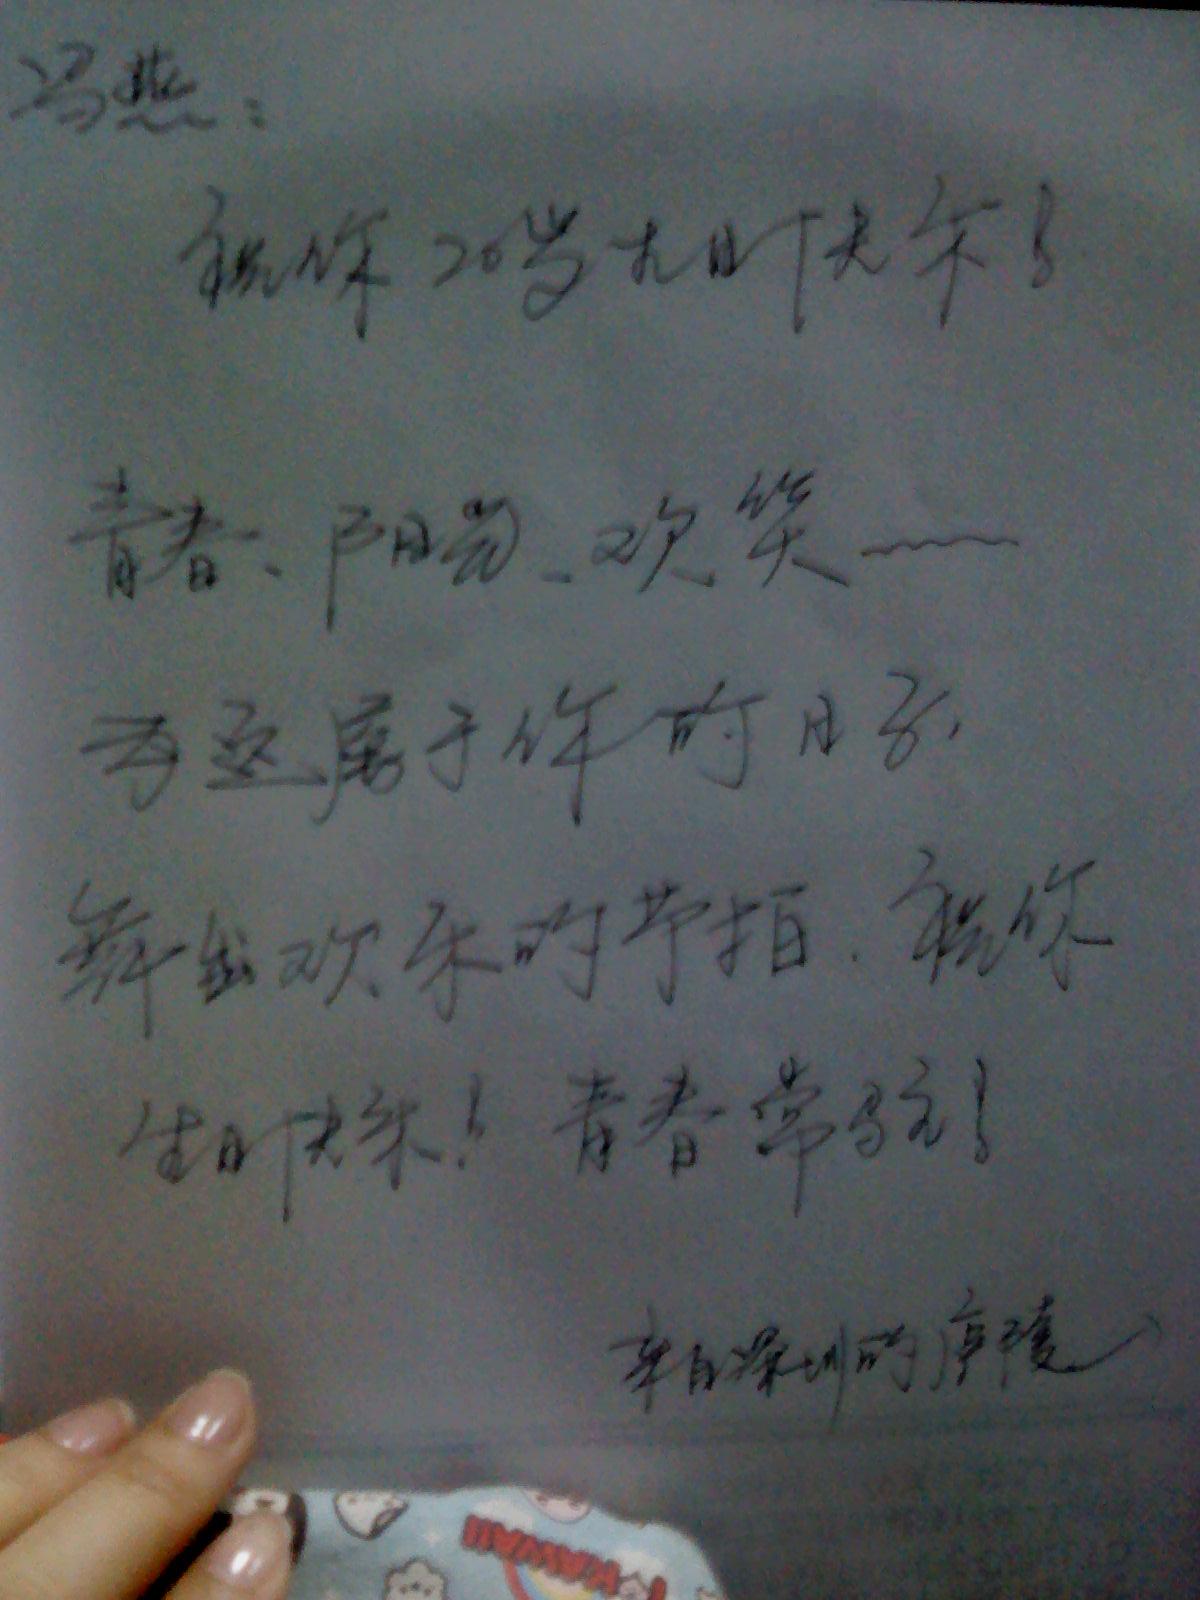 冯燕：
祝你20岁生日快乐！
青春、阳光、欢笑——
为这属于你的日子，
舞出欢乐的节拍．祝你
生日快乐！青春常驻！
来自深圳的
KAWAII